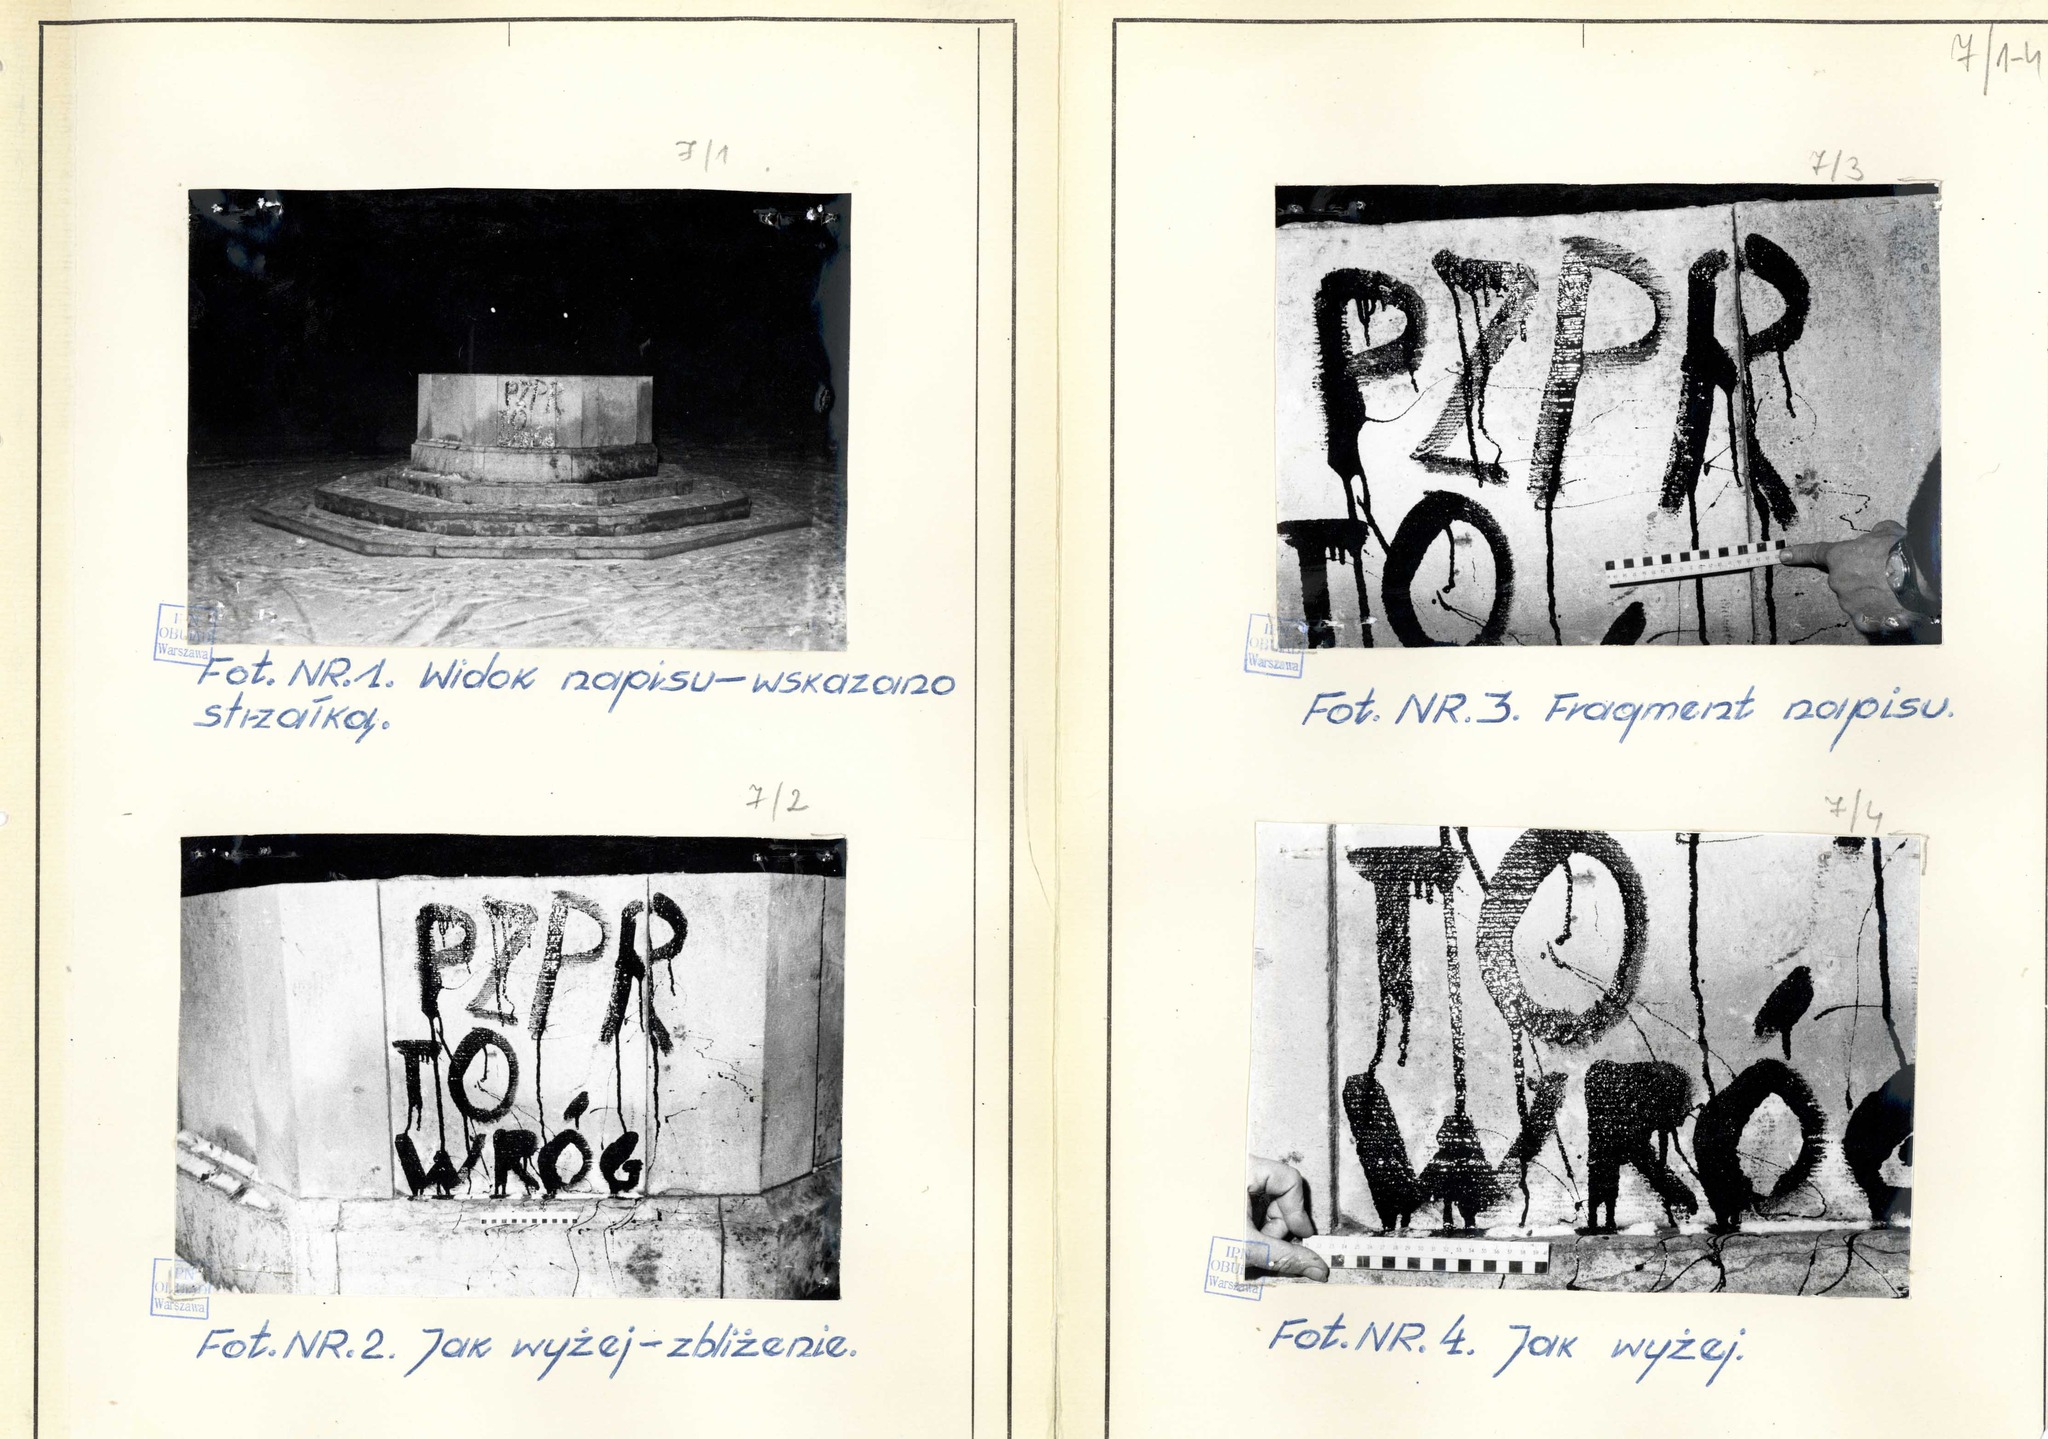 7/1-4
7/1
PZPR
TO
WRÓG
IPN
OBUIAD
Warszawa
Fot. NR.1. Widok napisu-wskazano
strzałką.
7/2
PZPR
TO
WRÓG
IPN
OBUIAD
Warszawa
Fot. NR.2. Jak wyżej-zbliżenie.
7/3
PZPR
TO
IPN
OBUIAD
Warszawa
Fot. NR.3. Fragment napisu.
7/4
TO
WRÓG
IPN
OBUIAD
Warszawa
Fot. NR.4. Jak wyżej.